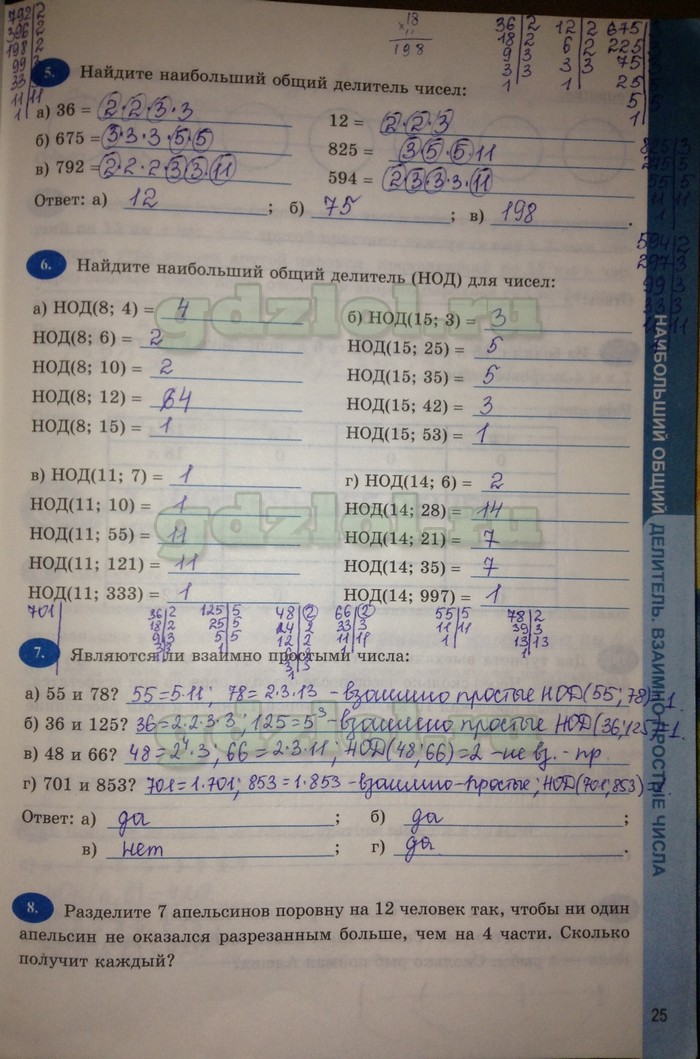 792 2
396 2
198 2
99 3
33 3
11 11
1
18
× 11
198
36 2
18 2
9 3
3 3
1
12 2
6 2
3 3
1
675
225
75
25
5
1
5. Найдите наибольший общий делитель чисел:
а) 36 = 2·2·3·3 12 = 2·2·3
б) 675 = 3·3·3·5·5 825 = 3·5·5·11
в) 792 = 2·2·2·3·3·11 594 = 2·3·3·3·11
Ответ: а) 12 ; б) 75 ; в) 198 .
594 2
297 3
99 3
33 3
11 11
6. Найдите наибольший общий делитель (НОД) для чисел:
а) НОД(8; 4) = 4
НОД(8; 6) = 2
НОД(8; 10) = 2
НОД(8; 12) = 4
НОД(8; 15) = 1
б) НОД(15; 3) = 3
НОД(15; 25) = 5
НОД(15; 35) = 5
НОД(15; 42) = 3
НОД(15; 53) = 1
в) НОД(11; 7) = 1
НОД(11; 10) = 1
НОД(11; 55) = 11
НОД(11; 121) = 11
НОД(11; 333) = 1
г) НОД(14; 6) = 2
НОД(14; 28) = 14
НОД(14; 21) = 7
НОД(14; 35) = 7
НОД(14; 997) = 1
gdzlol.ru
gdzlol.ru
gdzlol.ru
701
36 2
18 2
9 3
3 3
1
125 5
25 5
5 5
1
48 2
24 2
12 2
66 2
33 3
11 11
1
55 5
11 11
1
78 2
39 3
13 13
1
7. Являются ли взаимно простыми числа:
а) 55 и 78? 55=5·11; 78=2·3·13 – взаимно простые НОД(55;78)=1.
б) 36 и 125? 36=2·2·3·3; 125=5³ – взаимно простые НОД(36;125)=1.
в) 48 и 66? 48=2⁴·3; 66=2·3·11; НОД(48;66)=2 – не вз. – пр.
г) 701 и 853? 701=1·701; 853=1·853 – взаимно-простые; НОД(701;853)
Ответ: а) да ; б) да ;
в) нет ; г) да .
8. Разделите 7 апельсинов поровну на 12 человек так, чтобы ни один
апельсин не оказался разрезанным больше, чем на 4 части. Сколько
получит каждый?
НАИБОЛЬШИЙ ОБЩИЙ ДЕЛИТЕЛЬ. ВЗАИМНО ПРОСТЫЕ ЧИСЛА
25